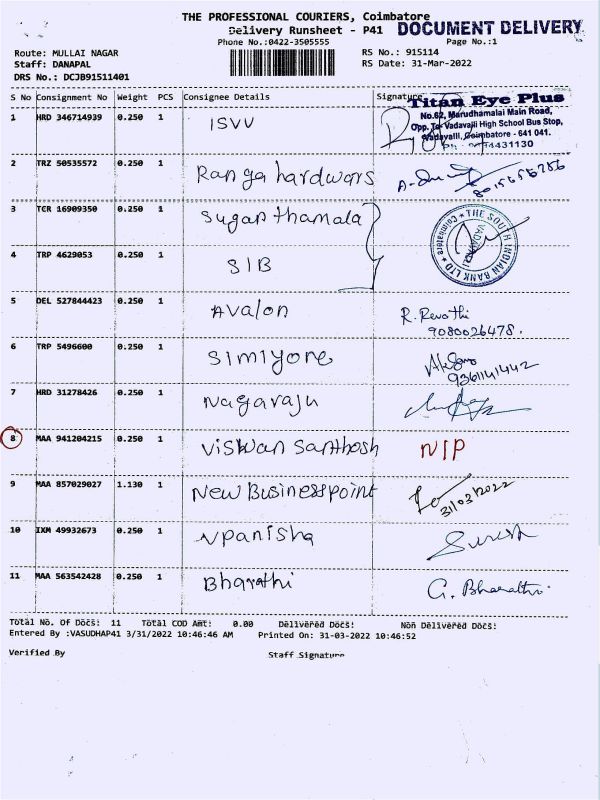 THE PROFESSIONAL COURIERS, Coimbatore
Delivery Runsheet - P41
DOCUMENT DELIVERY
Phone No.:0422-3505555
Page No.:1
Route: MULLAI NAGAR
RS No.: 915114
Staff: DANAPAL
RS Date: 31-Mar-2022
DRS No.: DCJB91511401
S No Consignment No Weight PCS Consignee Details Signature
Titan Eye Plus
No.62, Marudhamalai Main Road,
Opp. To Vadavalli High School Bus Stop,
Vadavalli, Coimbatore - 641 041.
1 HRD 346714939 0.250 1 ISVU
2 TRZ 50535572 0.250 1 Ranga hardwars
3 TCR 16909350 0.250 1 Suganthamala
THE SOUTH INDIAN BANK LTD
VADAVALLI
Coimbatore
4 TRP 4629053 0.250 1 SIB
5 DEL 527844423 0.250 1 Avalon R. Revathi
9080026478.
6 TRP 5496600 0.250 1 Simiyone
9361141442
7 HRD 31278426 0.250 1 Nagaraju
8 MAA 941204215 0.250 1 Viswan Santhosh NIP
9 MAA 857029027 1.130 1 New Businesspoint 31/03/2022
10 IXM 49932673 0.250 1 Npanisha Suresh
11 MAA 563542428 0.250 1 Bharathi G. Bharathi
Total No. Of Docs: 11 Total COD Amt: 0.00 Delivered Docs: Non Delivered Docs:
Entered By :VASUDHAP41 3/31/2022 10:46:46 AM Printed On: 31-03-2022 10:46:52
Verified By Staff Signature